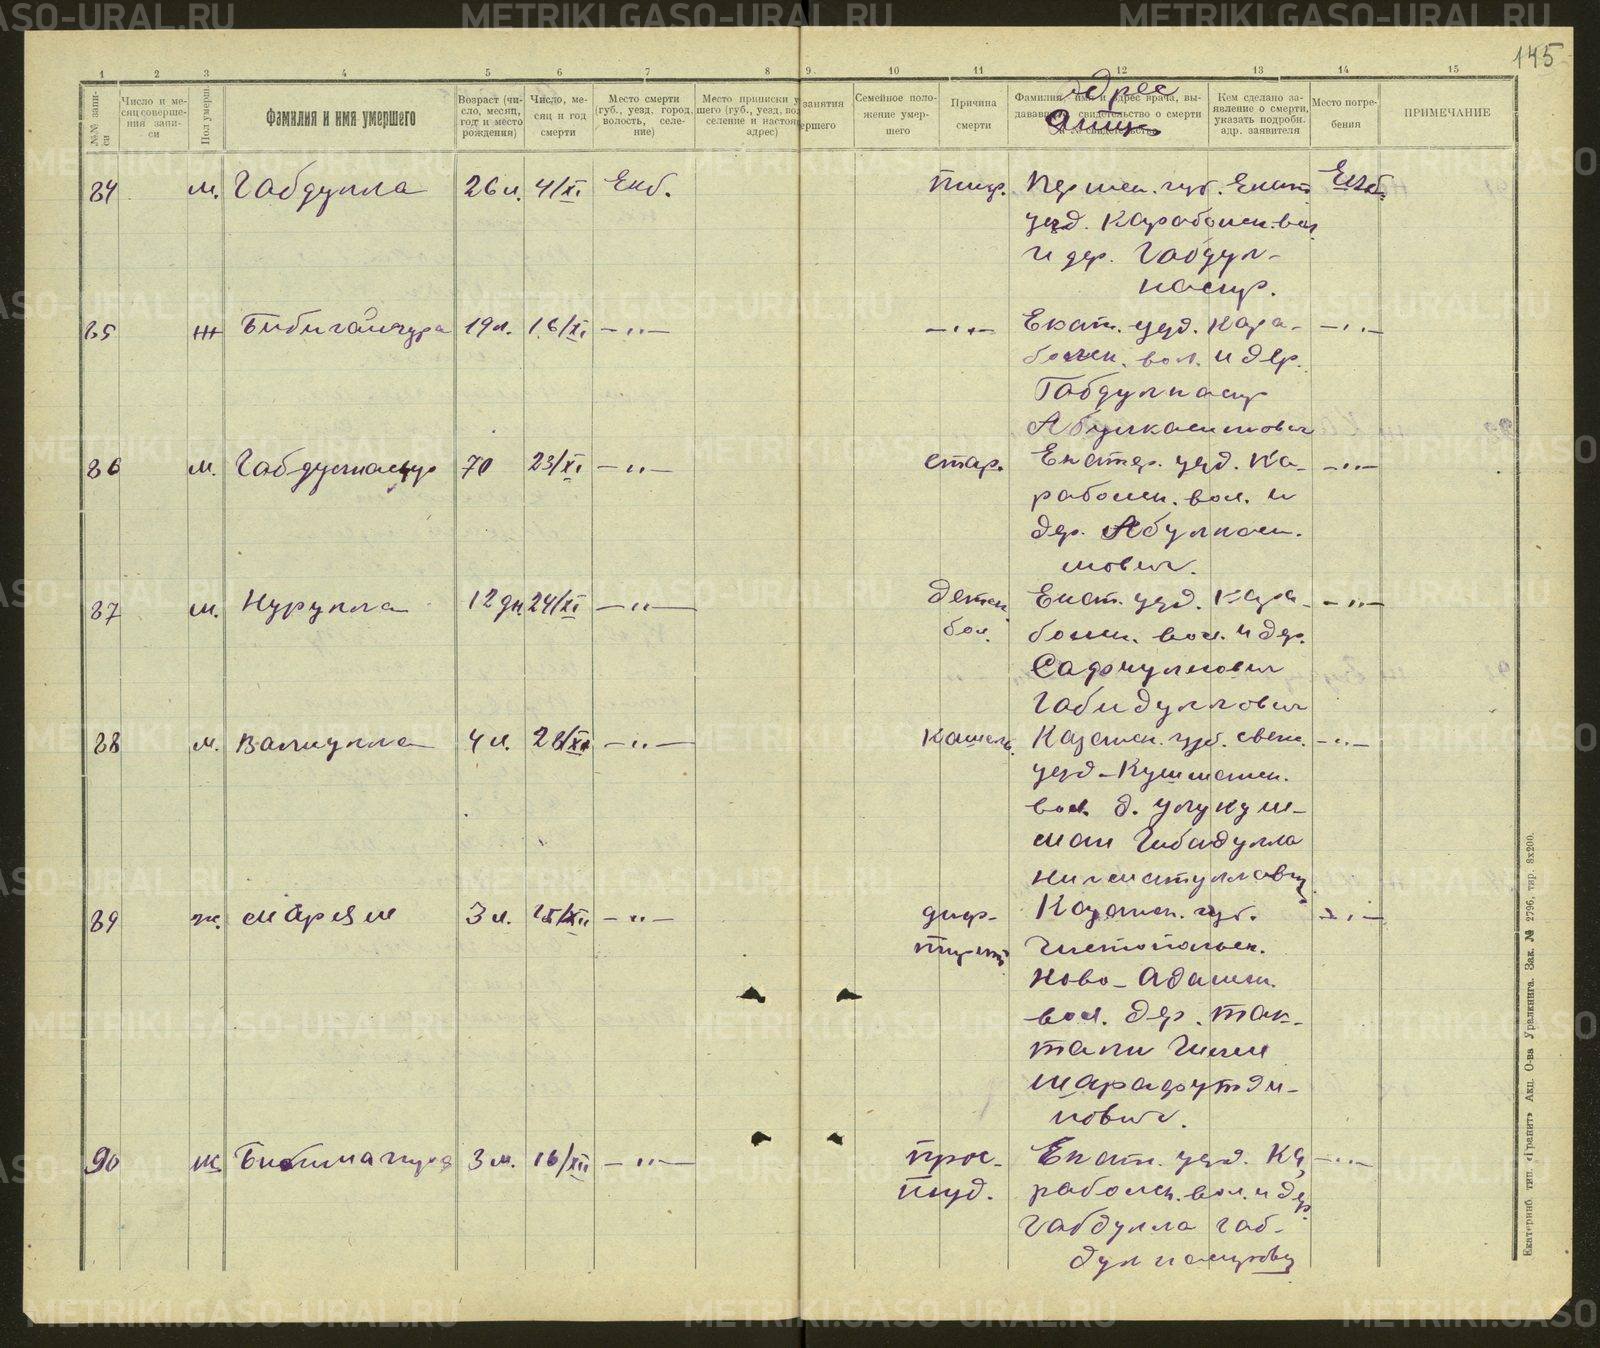 145
1 2 3 4 5 6 7 8 9 10 11 12 13 14 15
№№ записи
Число и месяц совершения записи
Пол умерш.
Фамилия и имя умершего
Возраст (число, месяц, год и место рождения)
Число, месяц и год смерти
Место смерти (губ., уезд, город, волость, селение)
Место приписки
Семейное положение умершего
Причина смерти
Фамилия, имя и адрес врача, выдававшего свидетельство о смерти
Адрес
Кем сделано заявление о смерти, указать подробн. адр. заявителя
Место погребения
ПРИМЕЧАНИЕ
84 м. Габдулла 26 л. 4/XI Екб. тиф. Пермск. губ. Екат. Екб.
уезд. Карабольск. вол.
и дер. Габдул-
насыр.
85 ж Бибигайшура 19 л. 16/XI —"— —"— Екат. уезд. Кара- —"—
больск. вол. и дер.
Габдулнасыр
Абулкасимович
86 м. Габдулнасыр 70 23/XI —"— стар. Екатер. уезд. Ка- —"—
рабольск. вол. и
дер. Абулкаси-
мович.
87 м. Нурулла 12 дн. 24/XI —"— детск. Екат. уезд. Кара- —"—
бол. больск. вол. и дер.
Габидуллович
88 м. Валиулла 4 м. 28/XI —"— Кашель. Казанск. губ. Свияж. —"—
уезд-Кушманск.
вол. д. Улукуш-
ман Гибадулла
Нигматуллович
89 ж. Марьям 3 м. —"— диф- Казанск. губ. —"—
Чистопольск.
Ново-Адамск.
вол. дер. Так-
тали
Шарафутди-
нович.
90 ж 3 м. 16/XII —"— прос- Екат. уезд. Ка- —"—
туд. рабольск. вол. и дер.
Габдулла Габ-
дулнасырович
Екатеринб тип. «Гранит» Акц. О-ва Уралкнига. Зак. № 2796, тир. 8х200.
METRIKI.GASO-URAL.RU